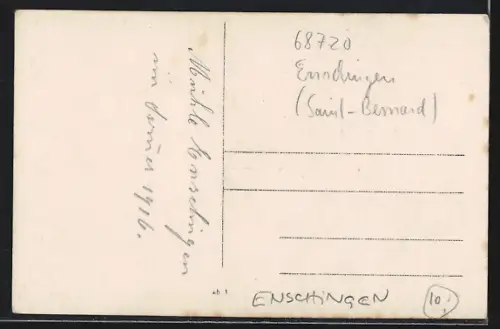 Mühle Enschingen
im Januar 1916.
68720
Enschingen
(Saint-Bernard)
ENSCHINGEN
10,-